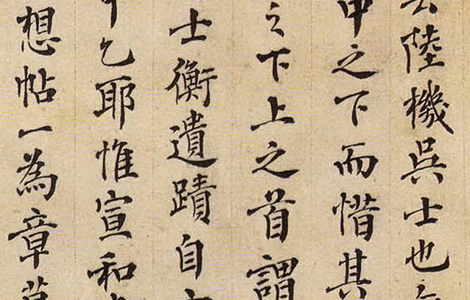 陸機吳士也
中之下而惜其
之下上之首謂
士衡遺蹟自
乞耶惟宣和
想帖一為章草